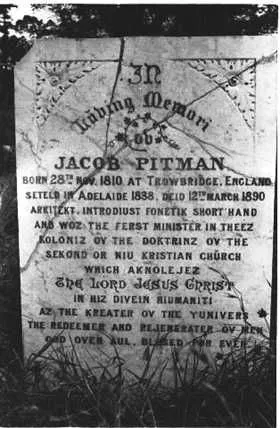 IN
Luving Memori
ov
JACOB PITMAN
BORN 28TH NOV. 1810 AT TROWBRIDGE, ENGLAND
SETELD IN ADELAIDE 1838, DEID 12TH MARCH 1890
ARKITEKT, INTRODIUST FONETIK SHORT HAND
AND WOZ THE FERST MINISTER IN THEEZ
KOLONIZ OV THE DOKTRINZ OV THE
SEKOND OR NIU KRISTIAN CHURCH
WHICH AKNOLEJEZ
The Lord Jesus Christ
IN HIZ DIVEIN HIUMANITI
AZ THE KREATER OV THE YUNIVERS
THE REDEEMER AND REJENERATER OV MEN
GOD OVER AUL, BLESED FOR EVER